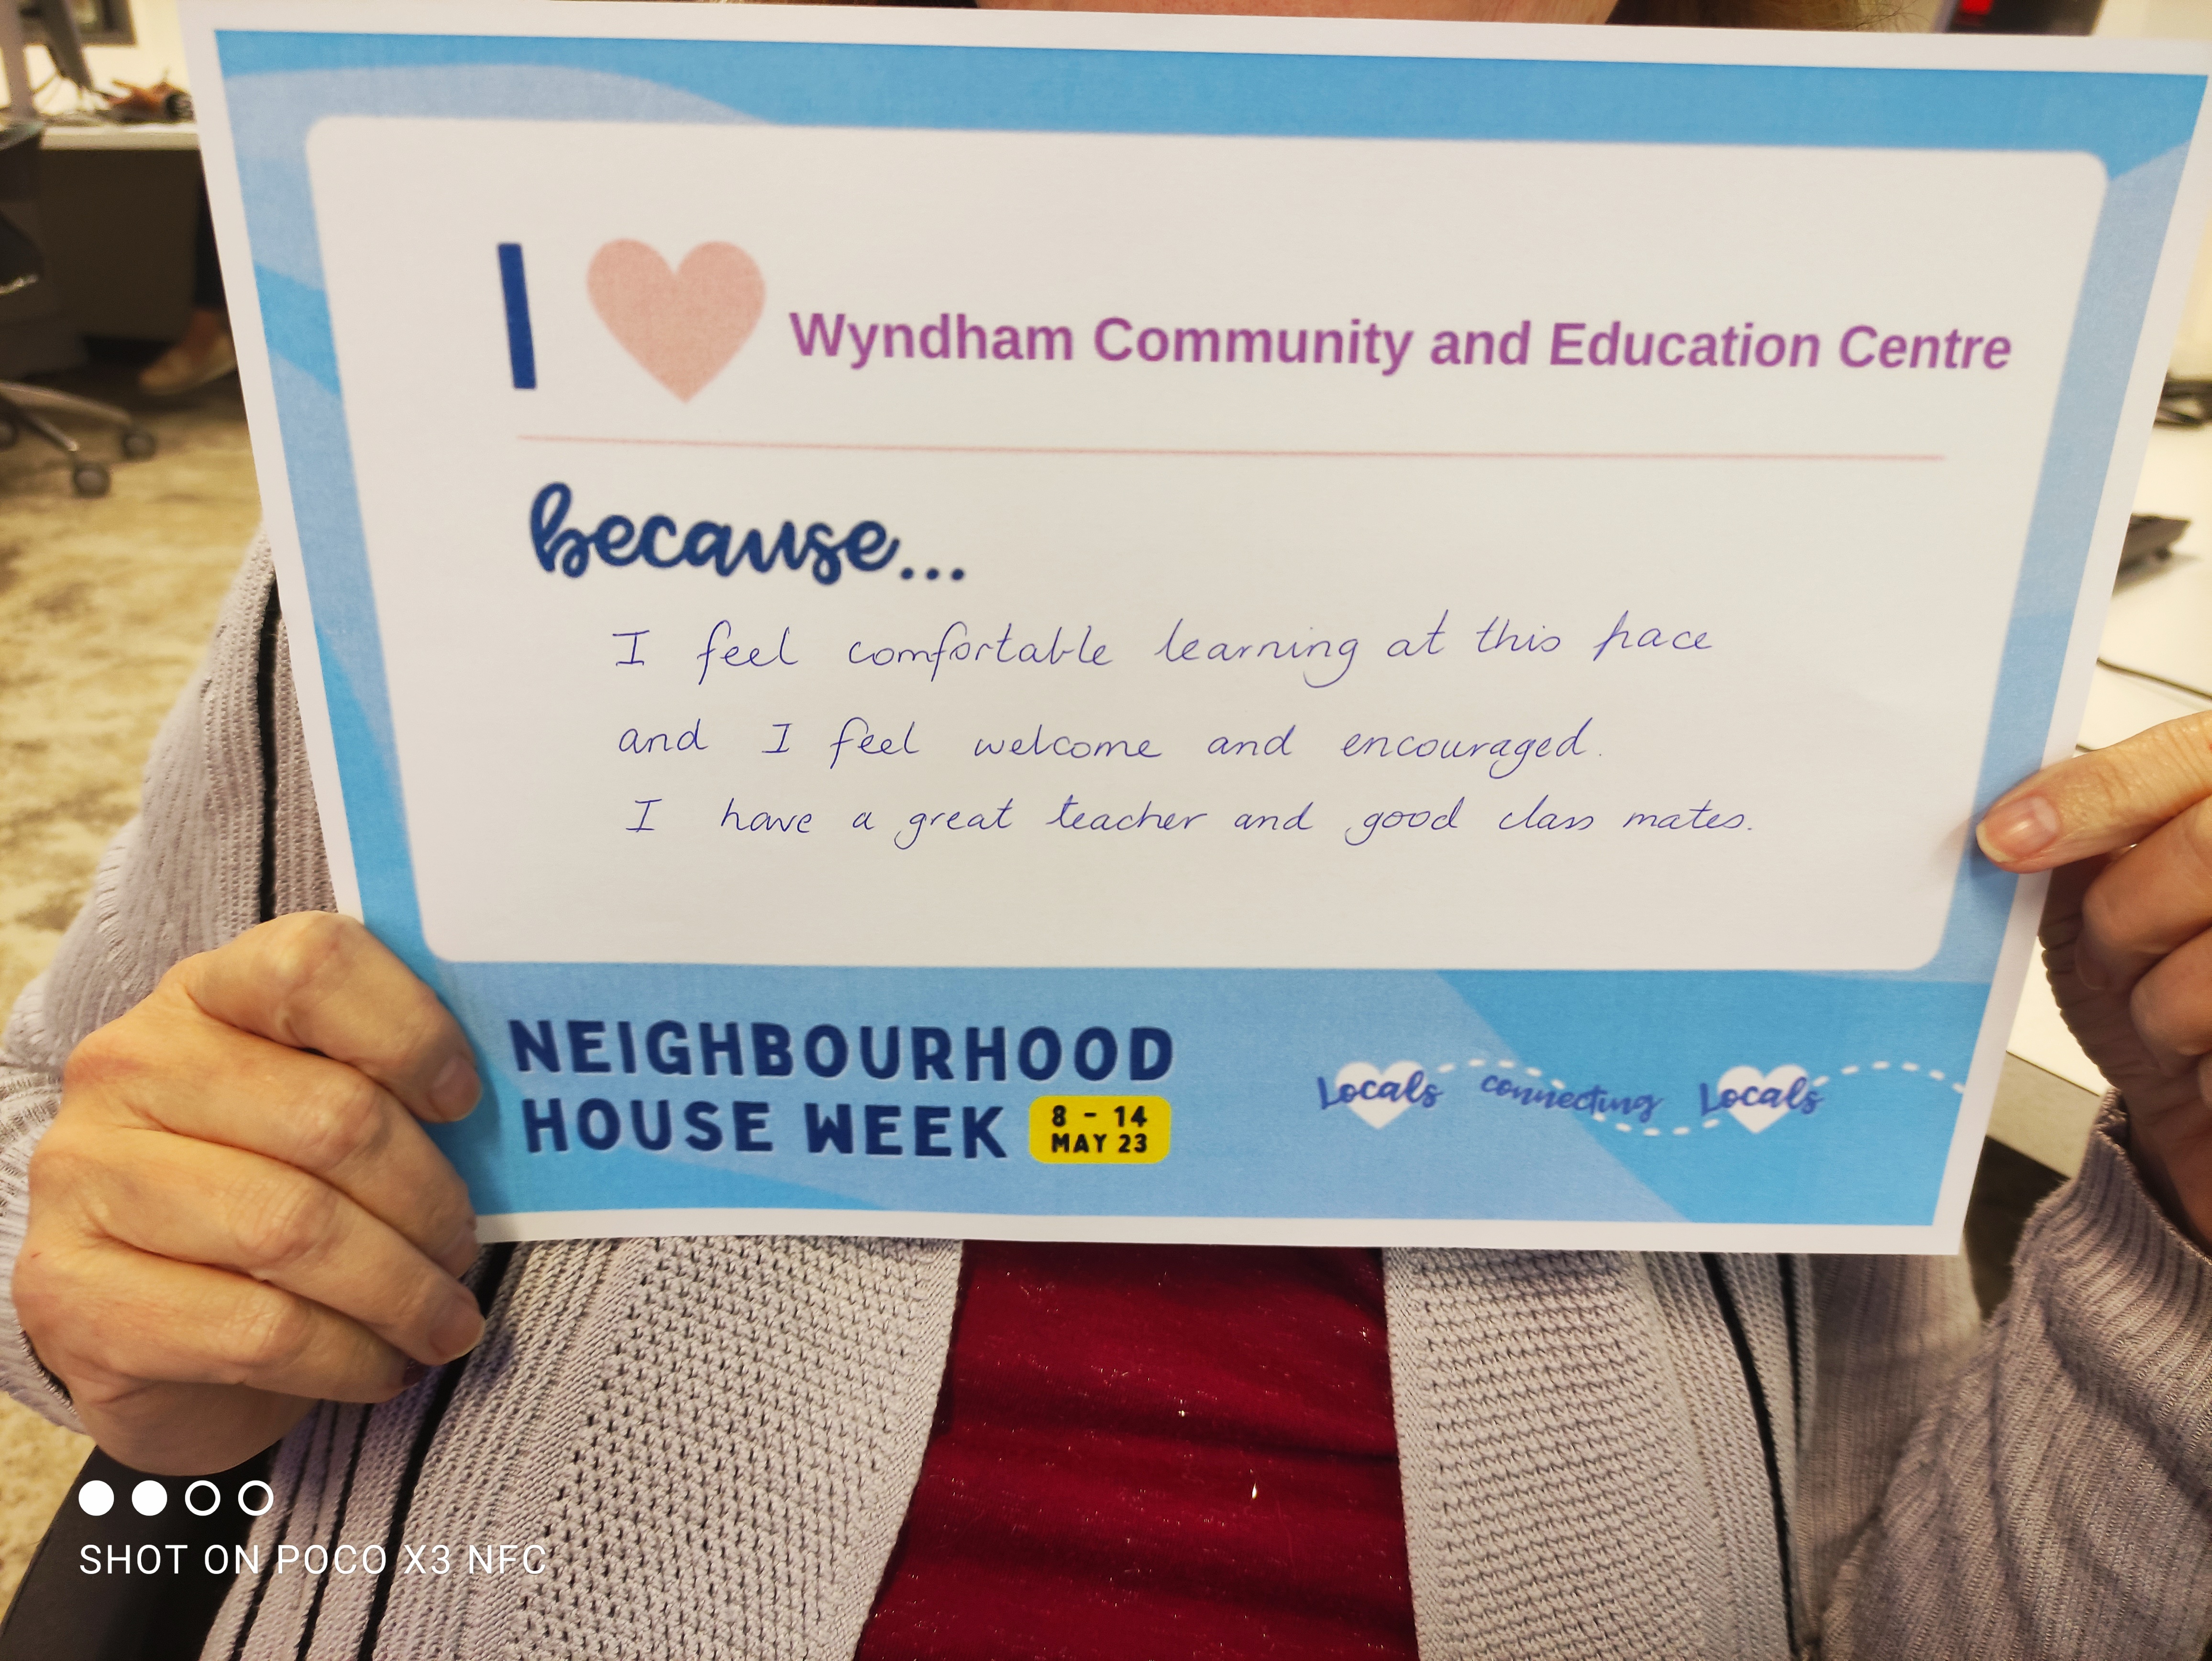 I ♥ Wyndham Community and Education Centre
because...
I feel comfortable learning at this pace
and I feel welcome and encouraged.
I have a great teacher and good class mates.
NEIGHBOURHOOD
HOUSE WEEK
8 - 14
MAY 23
Locals connecting Locals
SHOT ON POCO X3 NFC